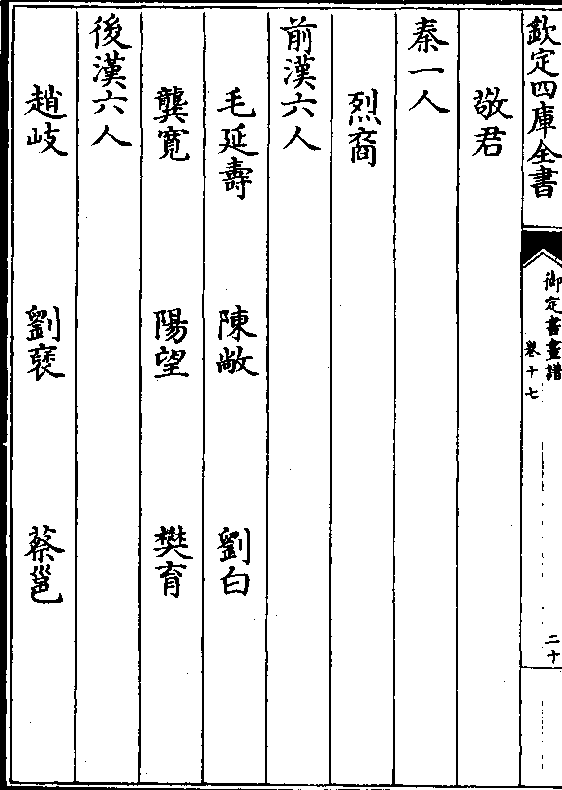 欽定四庫全書
御定書畫譜
卷十七
二十
敬君
秦一人
烈裔
前漢六人
毛延壽 陳敞 劉白
龔寛 陽望 樊育
後漢六人
趙岐 劉襃 蔡邕